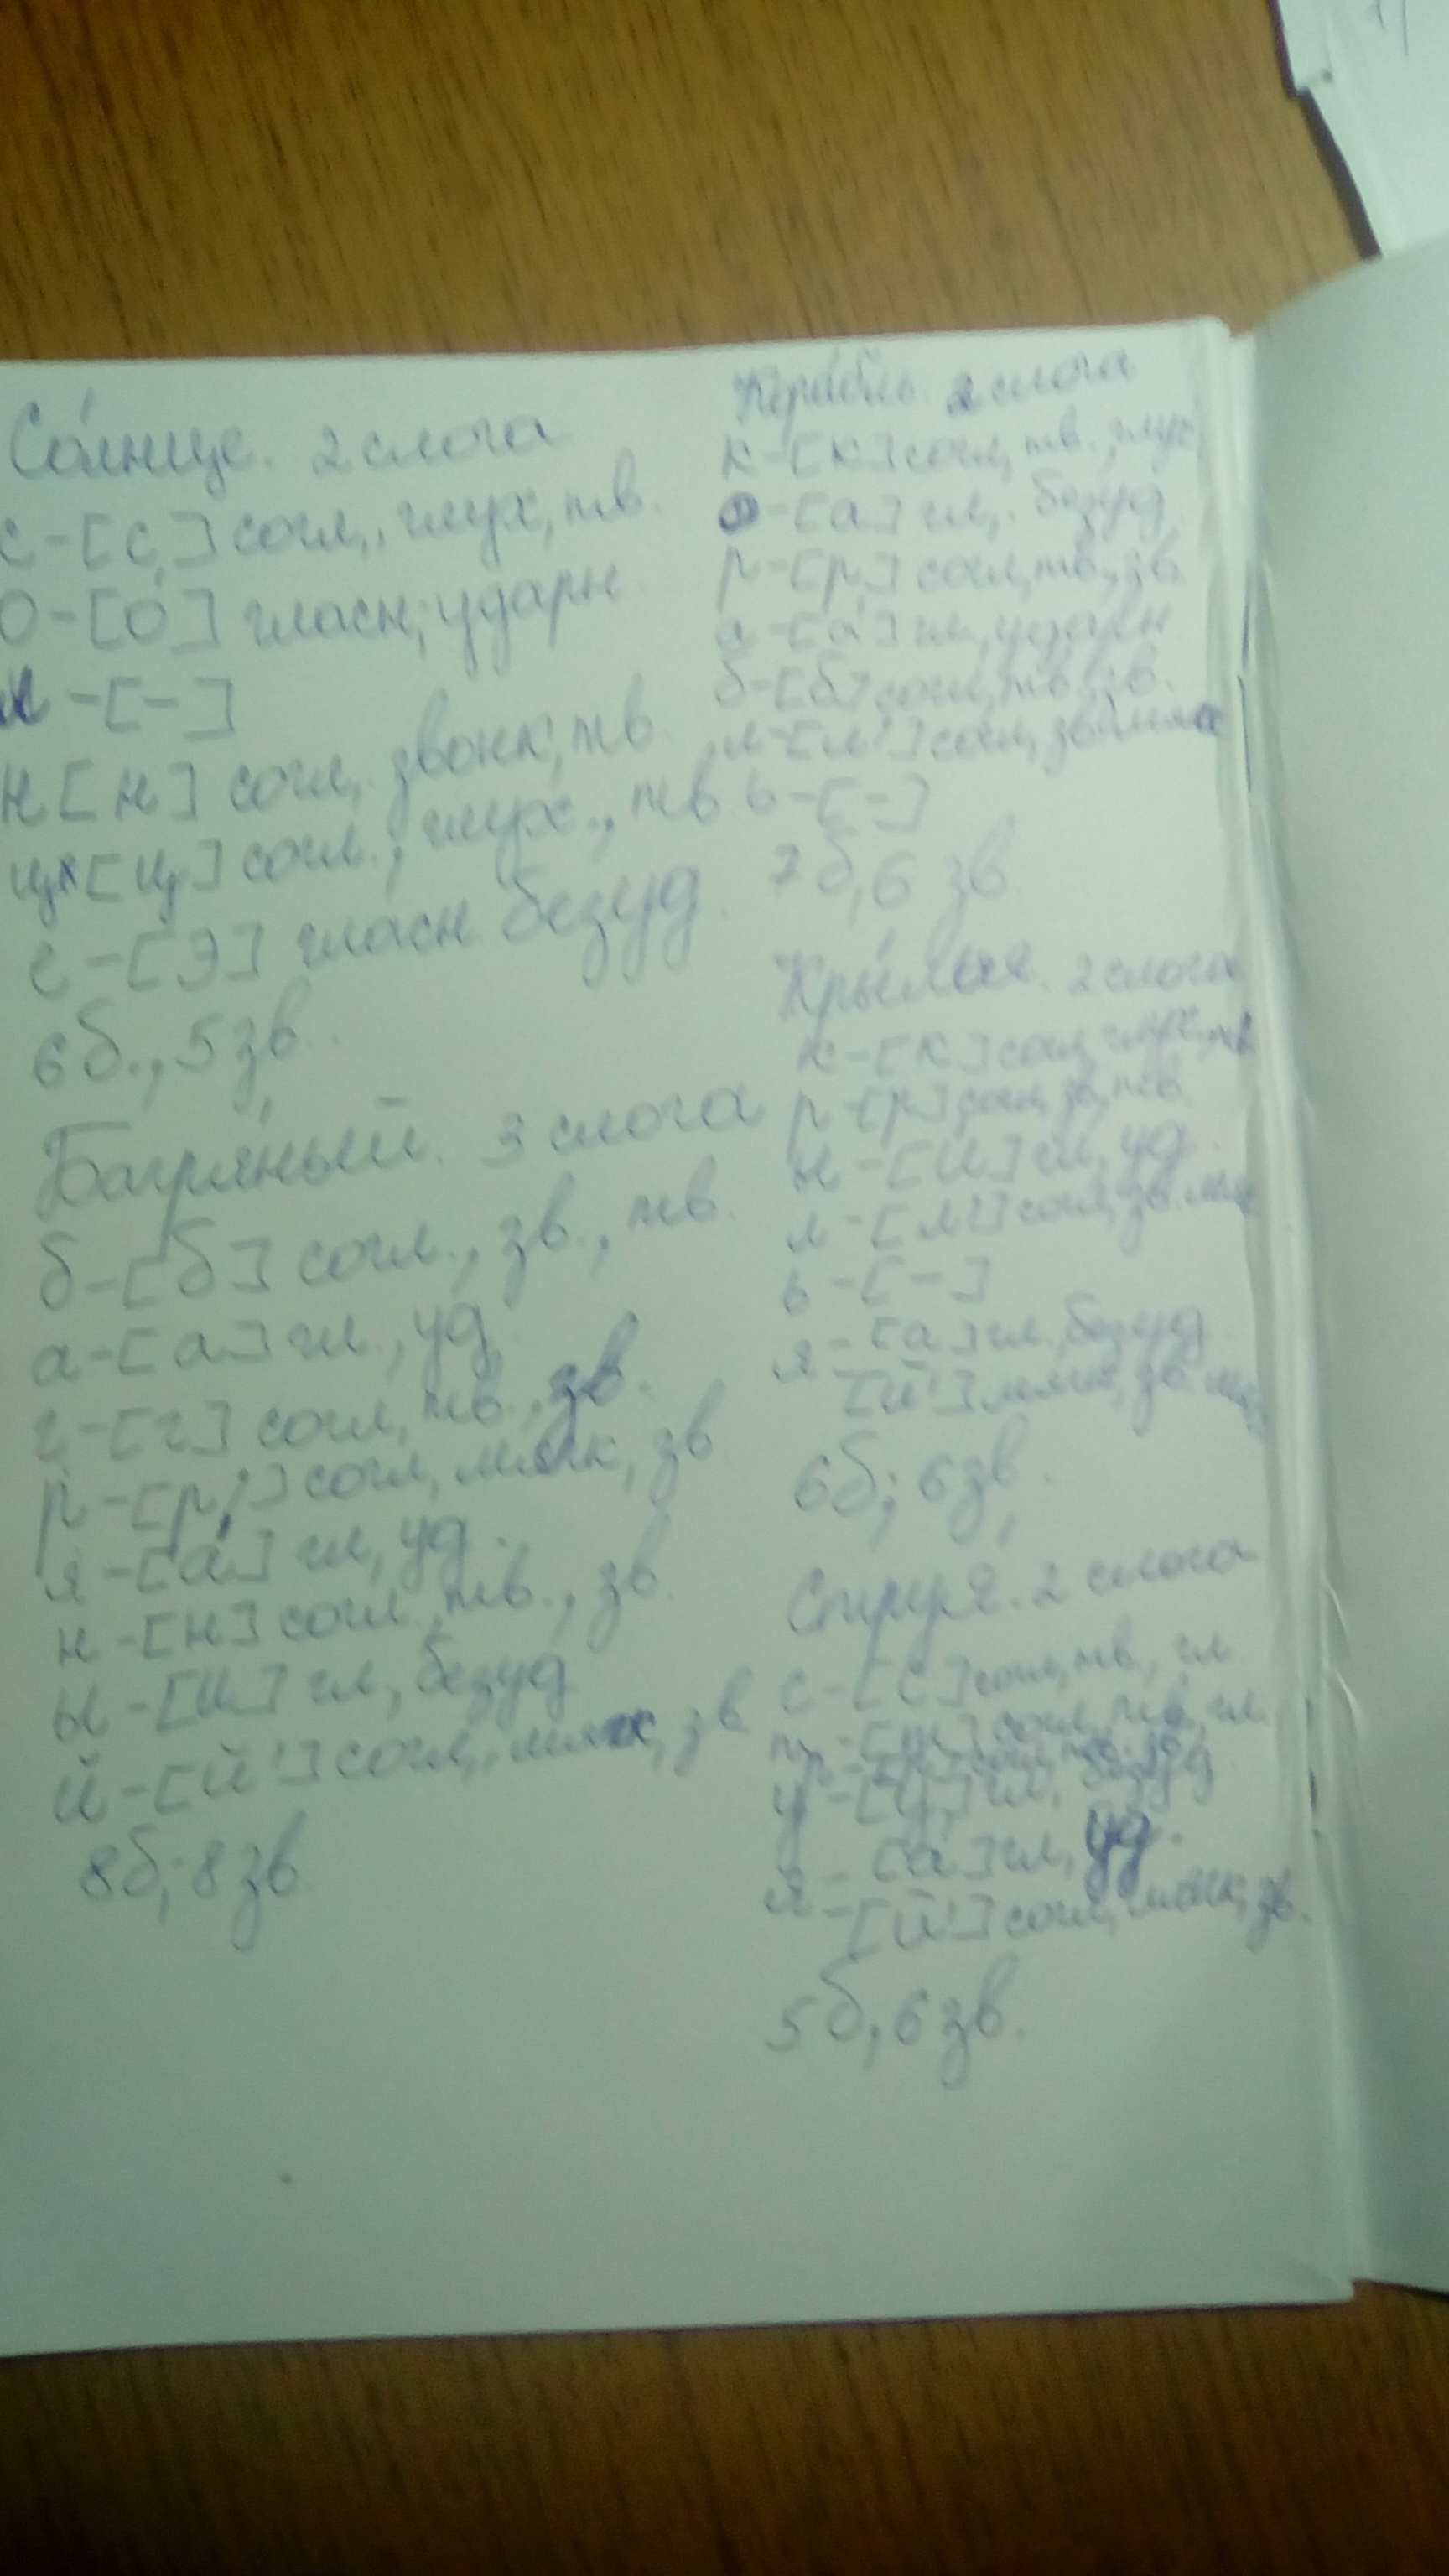 Со́лнце. 2 слога
с-[с] согл., глух, тв.
о-[о́] гласн, ударн.
л -[-]
н [н] согл, звонк, тв
ц [ц] согл., глух., тв
е-[э] гласн. безуд.
6б., 5 зв.
Багря́ный. 3 слога
б-[б] согл., зв., тв.
а-[а] гл., уд
г-[г] согл, тв., зв.
р-[р'] согл, мягк, зв
я-[а́] гл, уд.
н-[н] согл, тв., зв.
ы-[ы] гл, безуд
й-[й'] согл, мягк, зв
8б; 8 зв
Кора́бль. 2 слога
к-[к] согл, тв., глух
о-[а] гл, безуд.
р-[р] согл, тв, зв.
а-[а́] гл, ударн.
б-[б] согл, тв, зв.
л-[л'] согл, зв, мягк
ь-[-]
7б, 6 зв
Кры́лья. 2 слога
к-[к] согл, глух, тв
р-[р] согл, зв, тв.
ы-[ы] гл, уд.
л-[л'] согл, зв.
ь-[-]
я-[а] гл, безуд
[й'] мягк, зв.
6б; 6 зв.
Струя́. 2 слога
с-[с] согл, тв., гл
т-[т] согл, тв, гл.
р-[р] согл, тв.
у-[у] гл, безуд.
я-[а́] гл, уд.
[й'] согл, мягк, зв.
5б, 6 зв.